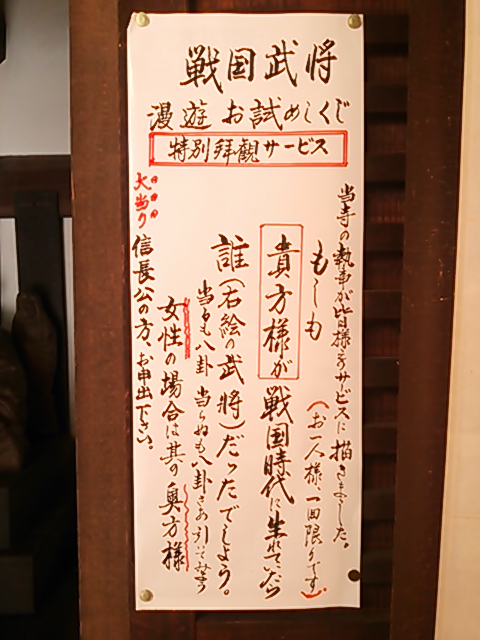 戦国武将
漫遊お試めしくじ
特別拝観サービス
当寺の執事が皆様でサービスに描きました。
もしも
(お一人様、一回限りです)
貴方様が戦国時代に生れていたら
誰(右絵の武将)だったでしょう。
当るも八卦 当らぬも八卦さあ引いてみよう
女性の場合は其の奥方様
大当り信長公の方、お申出下さい。